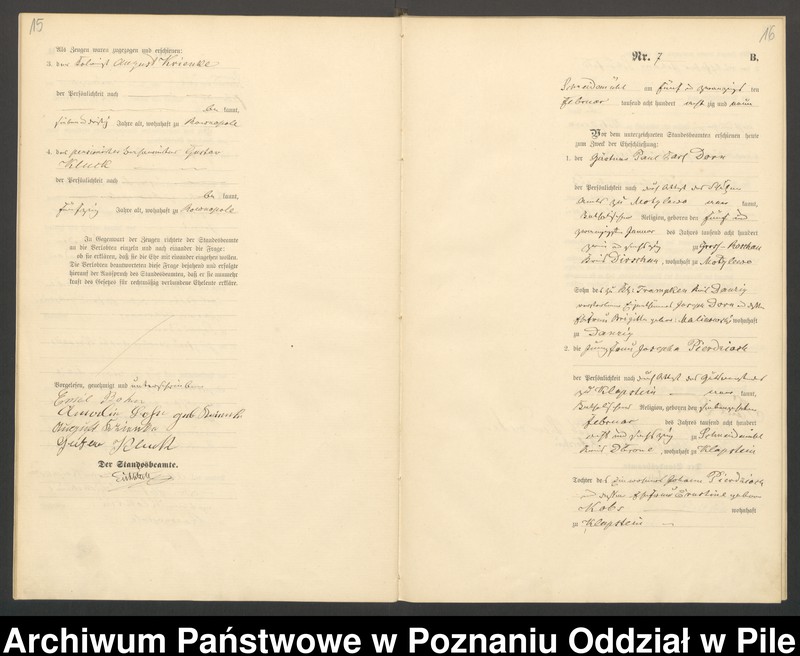 15
Als Zeugen waren zugezogen und erschienen:
3. der August Krienke
der Persönlichkeit nach
be kannt,
Jahre alt, wohnhaft zu
4. der Gustav
Kluck
der Persönlichkeit nach
be kannt,
fünfzig Jahre alt, wohnhaft zu
In Gegenwart der Zeugen richtete der Standesbeamte
an die Verlobten einzeln und nach einander die Frage:
ob sie erklären, daß sie die Ehe mit einander eingehen wollen.
Die Verlobten beantworteten diese Frage bejahend und erfolgte
hierauf der Ausspruch des Standesbeamten, daß er sie nunmehr
kraft des Gesetzes für rechtmäßig verbundene Eheleute erkläre.
Vorgelesen, genehmigt und unterschrieben
Emil
geb
August Krienke
Gustav Kluck
Der Standesbeamte.
16
Nr. 7 B.
Schneidemühl am fünf und zwanzigsten
Februar tausend acht hundert und neun
Vor dem unterzeichneten Standesbeamten erschienen heute
zum Zweck der Eheschließung:
1. der Paul Carl Dorn
der Persönlichkeit nach durch Attest des
Amts zu Motylewo kannt,
katholischer Religion, geboren den fünf und
zwanzigsten Januar des Jahres tausend acht hundert
zu Gross-Roschau
Kreis Dirschau, wohnhaft zu Motylewo
Sohn des zu Trampken Kreis Danzig
verstorbenen Eigenthümers Joseph Dorn und dessen
Ehefrau Brigitte geborne Malinowski wohnhaft
zu Danzig
2. die Jungfrau Josepha Pierdziach
der Persönlichkeit nach durch Attest des
zu Klapstein kannt,
katholischer Religion, geboren den
Februar des Jahres tausend acht hundert
acht und sechszig zu Schneidemühl
Kreis, wohnhaft zu Klapstein
Tochter des Einwohners Johann Pierdziach
und dessen Ehefrau Ernestine geborne
Kobs wohnhaft
zu Klapstein
Archiwum Państwowe w Poznaniu Oddział w Pile